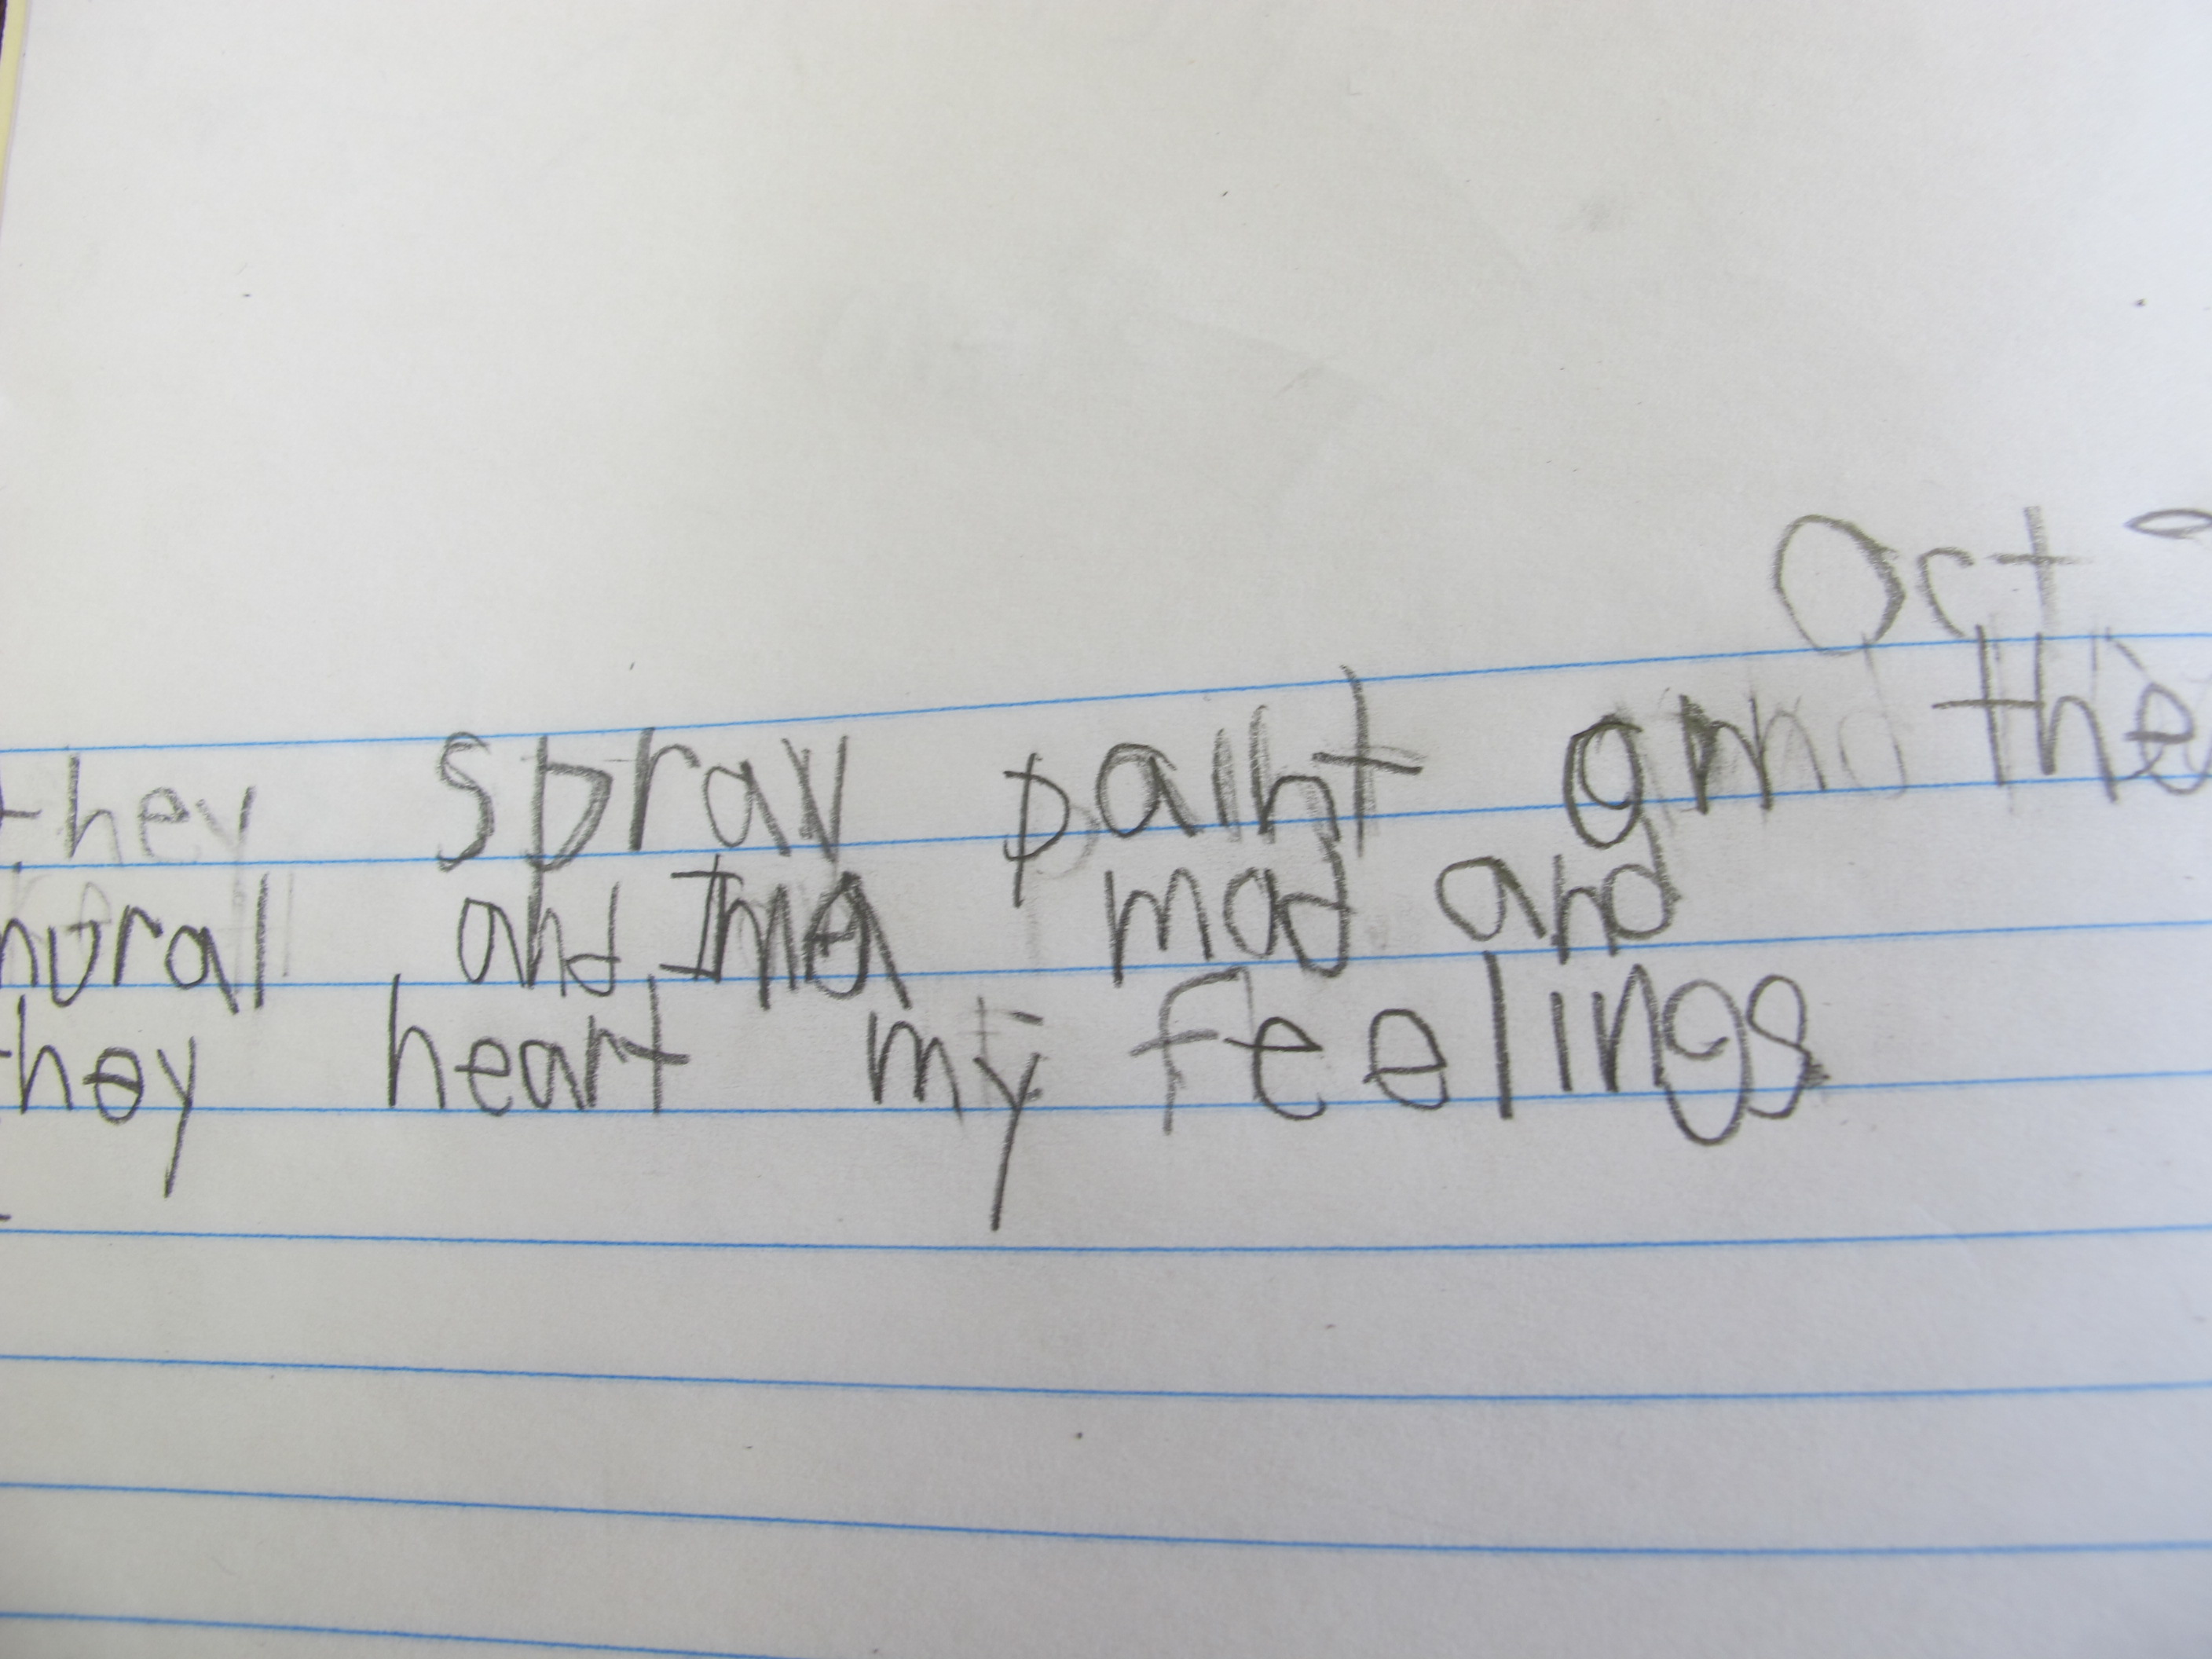 Art
they spray paint on the
mural and Ima mad and
they heart my feelings